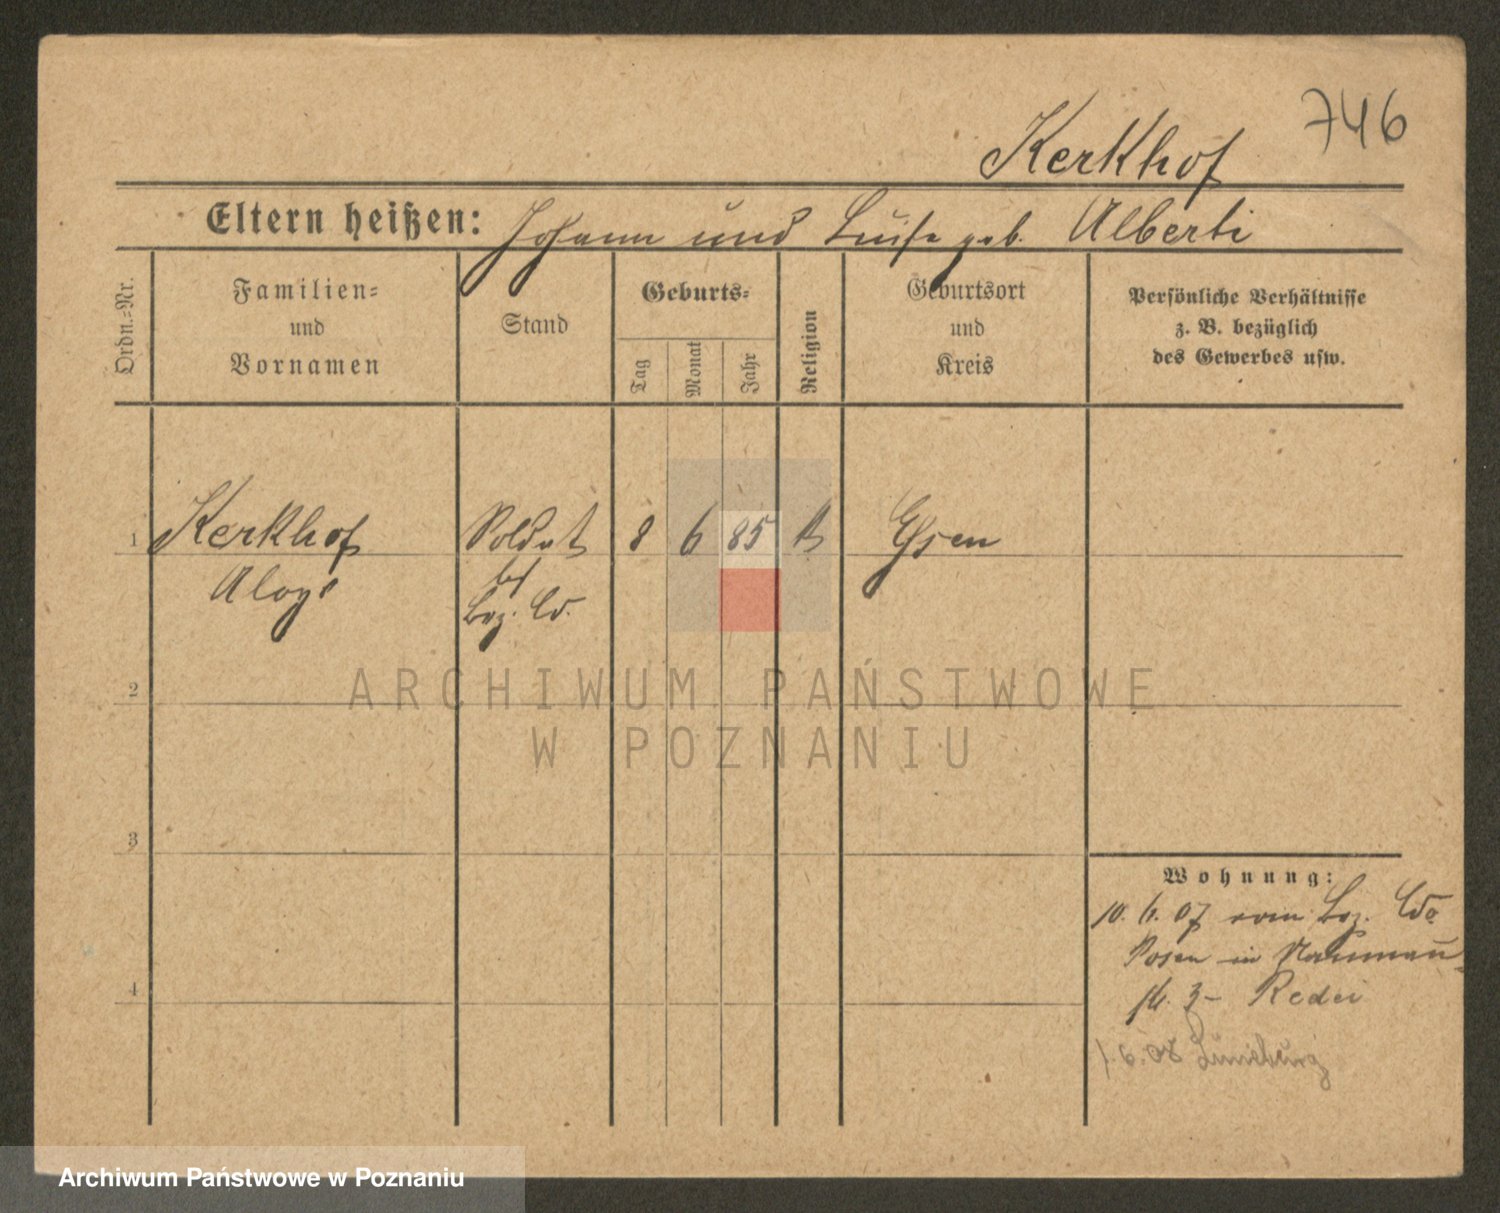 746
Kerkhof
Eltern heißen: Johann und Luise geb. Alberti
Ordn.=Nr.
Familien=
und
Vornamen
Stand
Geburts=
Tag
Monat
Jahr
Religion
Geburtsort
und
Kreis
Persönliche Verhältnisse
z. B. bezüglich
des Gewerbes usw.
1 Kerkhof Soldat 8 6 85 Essen
Aloys
Bez. Cdo.
ARCHIWUM PAŃSTWOWE
W POZNANIU
2
3
4
Wohnung:
10. 6. 07 vom Bez. Cdo
Posen in Naumann
str. 3 -
1.6.08 Lüneburg
Archiwum Państwowe w Poznaniu